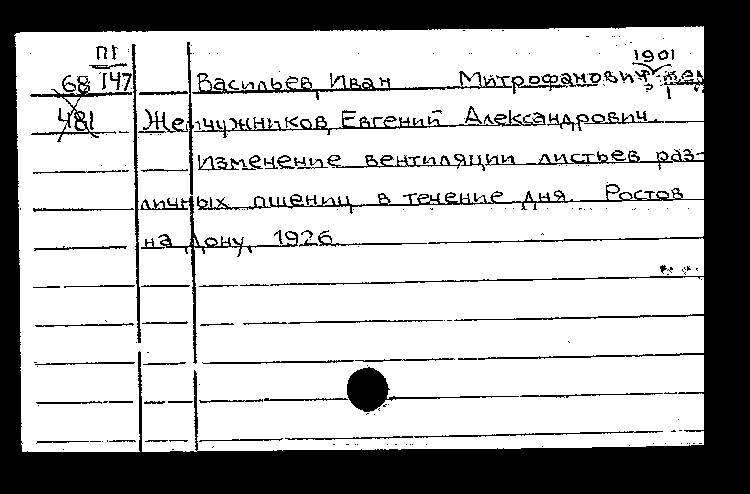 П1
1901
68 147 Васильев, Иван Митрофанович
481 Жемчужников, Евгений Александрович.
Изменение вентиляции листьев раз-
личных пшениц в течение дня. Ростов
на Дону, 1926